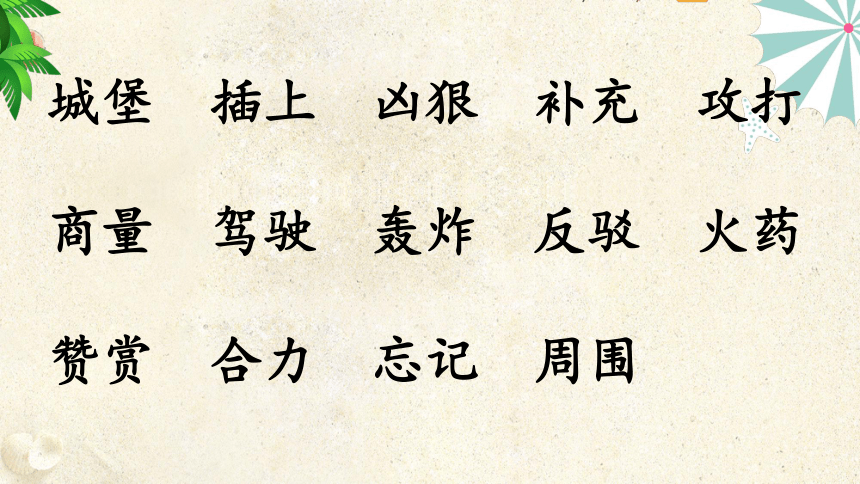 城堡 插上 凶狠 补充 攻打
商量 驾驶 轰炸 反驳 火药
赞赏 合力 忘记 周围